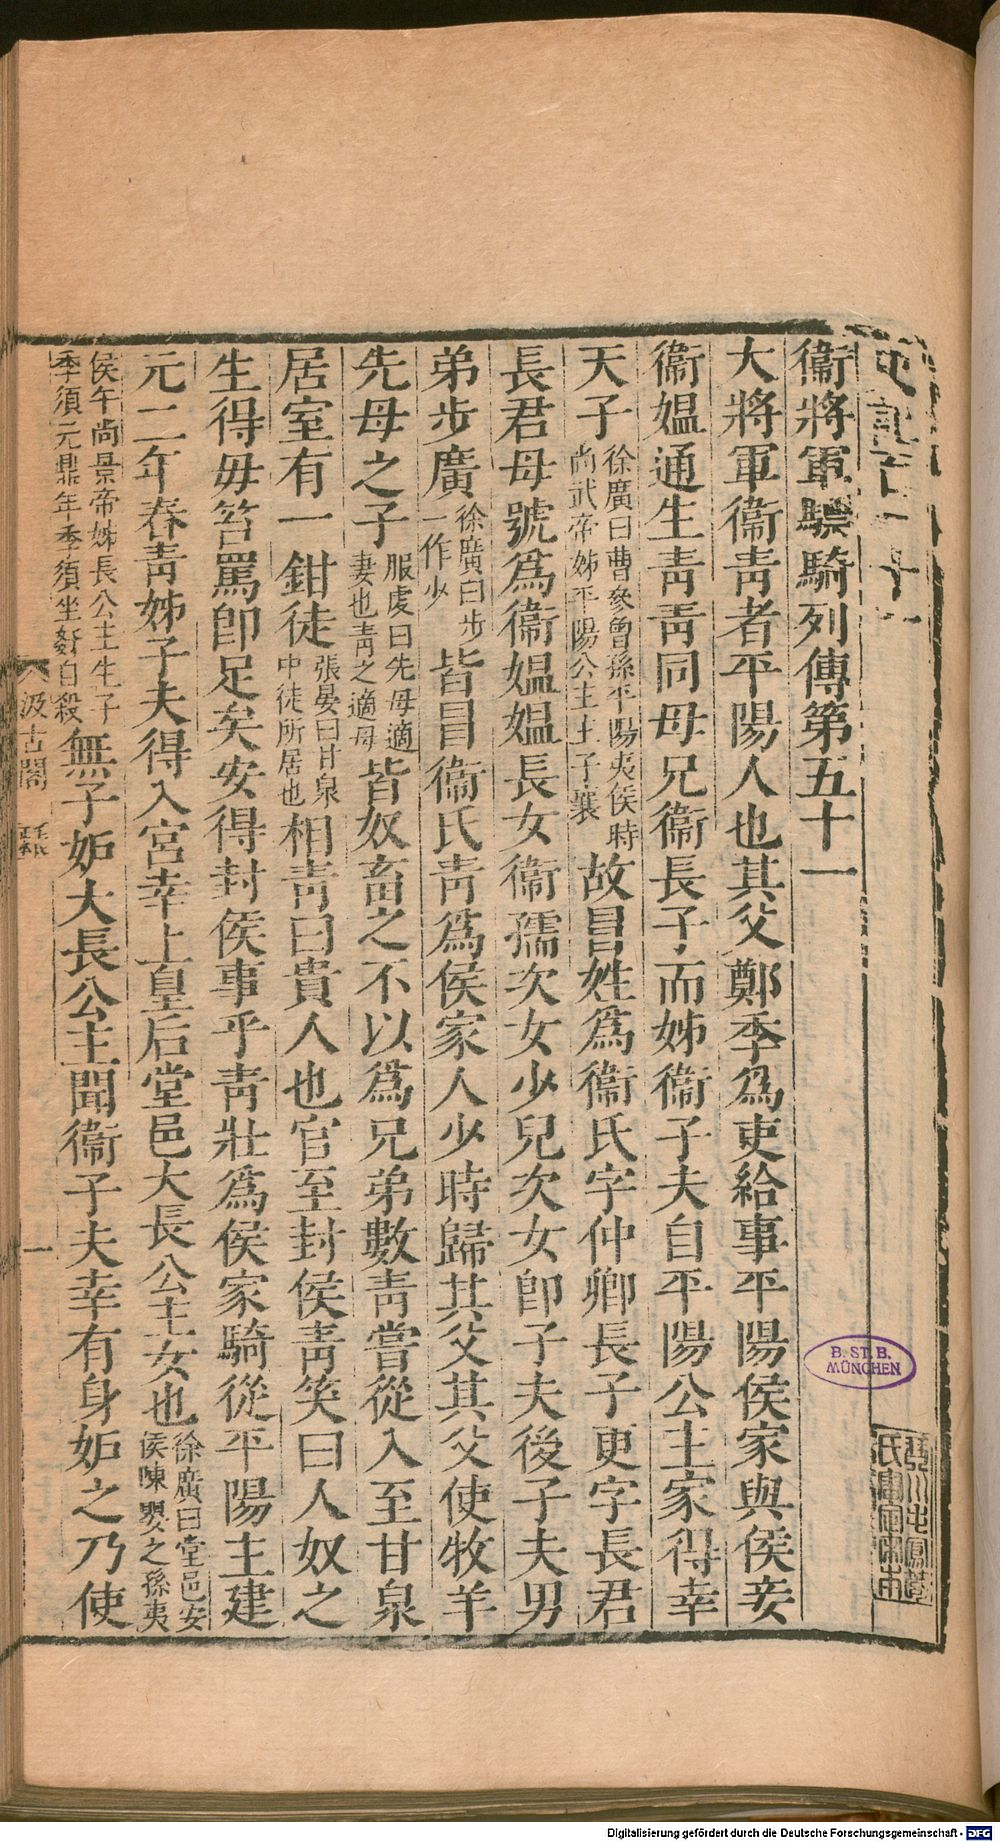 史記百一十一
衞將軍驃騎列傳第五十一
大將軍衞靑者平陽人也其父鄭季爲吏給事平陽侯家與侯妾
衞媼通生靑靑同母兄衞長子而姊衞子夫自平陽公主家得幸
天子徐廣曰曹參曾孫平陽夷侯時尚武帝姊平陽公主生子襄故冒姓爲衞氏字仲卿長子更字長君
長君母號爲衞媼媼長女衞孺次女少兒次女卽子夫後子夫男
弟步廣徐廣曰步一作少皆冒衞氏靑爲侯家人少時歸其父其父使牧羊
先母之子服虔曰先母適妻也靑之適母皆奴畜之不以爲兄弟數靑嘗從入至甘泉
居室有一鉗徒張晏曰甘泉中徒所居也相靑曰貴人也官至封侯靑笑曰人奴之
生得毋笞罵卽足矣安得封侯事乎靑壯爲侯家騎從平陽主建
元二年春靑姊子夫得入宮幸上皇后堂邑大長公主女也徐廣曰堂邑安侯陳嬰之孫夷
侯午尚景帝姊長公主生子季須元鼎年季須坐姦自殺無子妒大長公主聞衞子夫幸有身妒之乃使
汲古閣
毛氏
一
B. ST. B.
MÜNCHEN
Digitalisierung gefördert durch die Deutsche Forschungsgemeinschaft - DFG